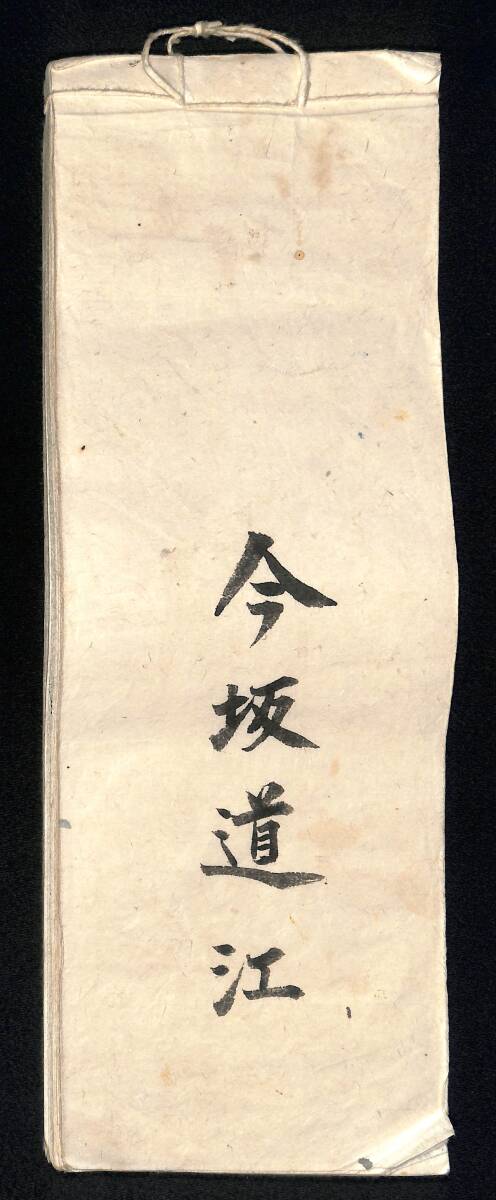 今坂道江